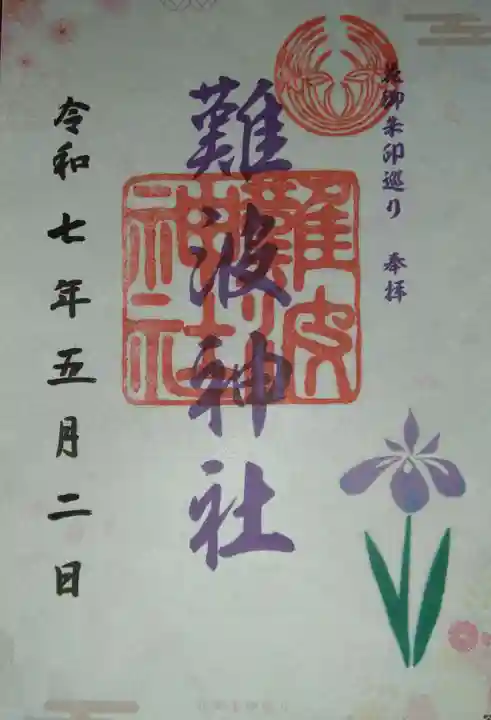 花御朱印巡り 奉拝
難波神社
難波神社
令和七年五月二日